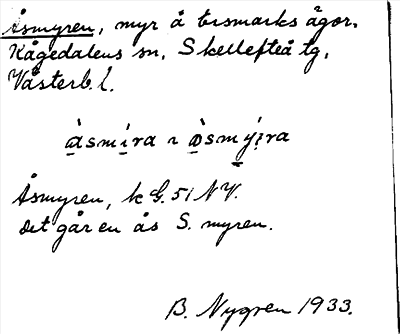 Åsmyren, myr å Ersmarks ägor.
Kågedalens sn, Skellefteå tg,
Västerb. l.
åsmira ~ åsmýira
Åsmyren, k G. 51 NV.
det går en ås S. myren.
B. Nygren 1933.